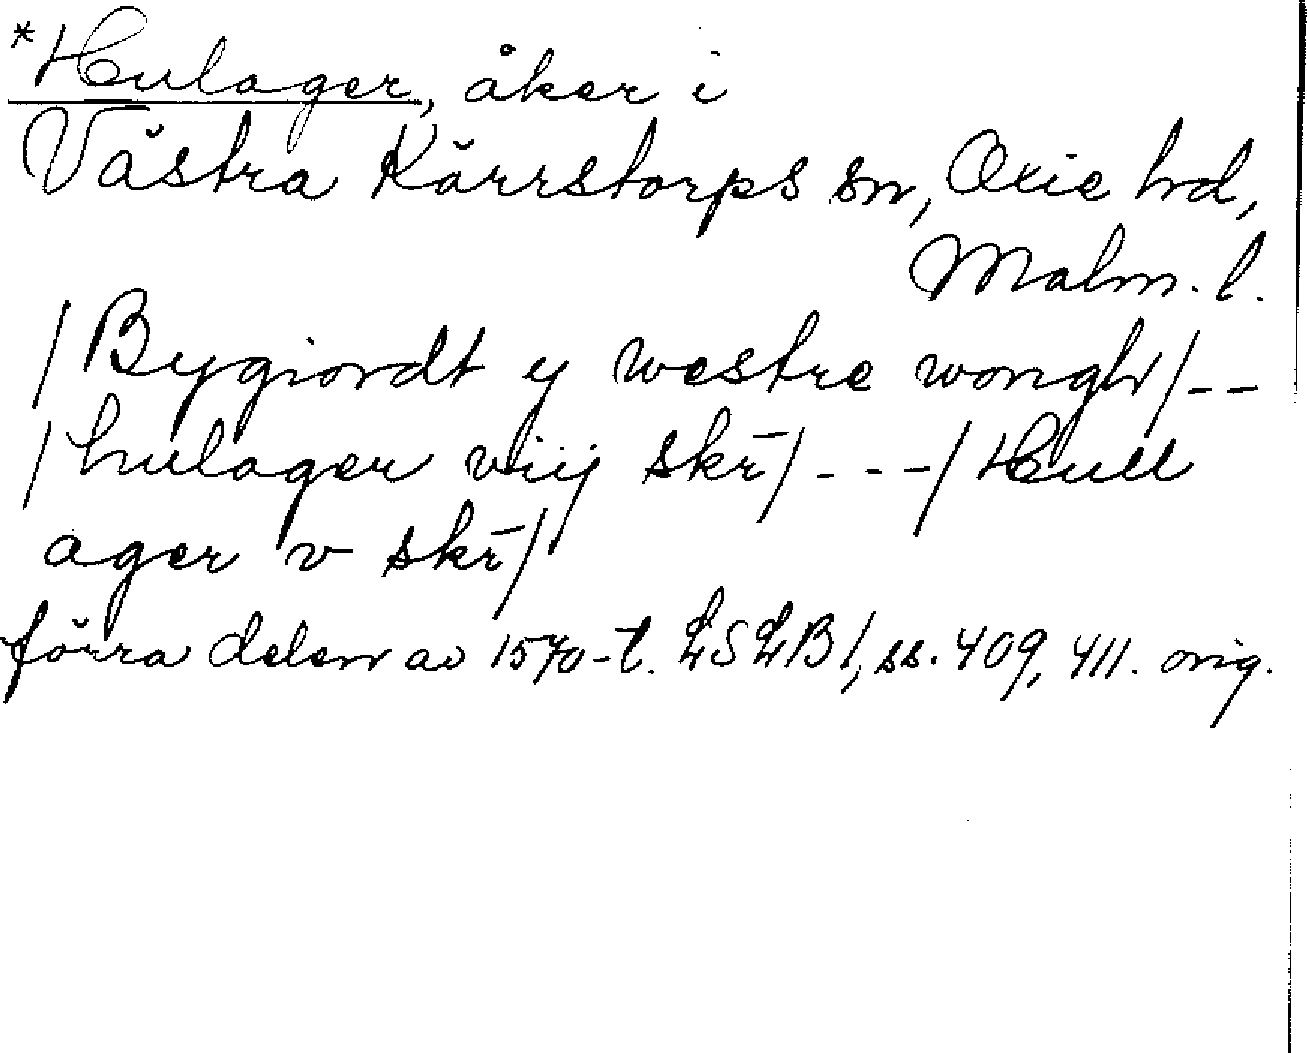 *Hulager, åker i
Västra Kärrstorps sn, Oxie hd,
Malm. l.
/Bygiordt y westre wongh/--
/hulager viij skr̄/---/Hull
ager v skr̄/
förra delen av 1570-t. LSLB 1, ss. 409, 411. orig.